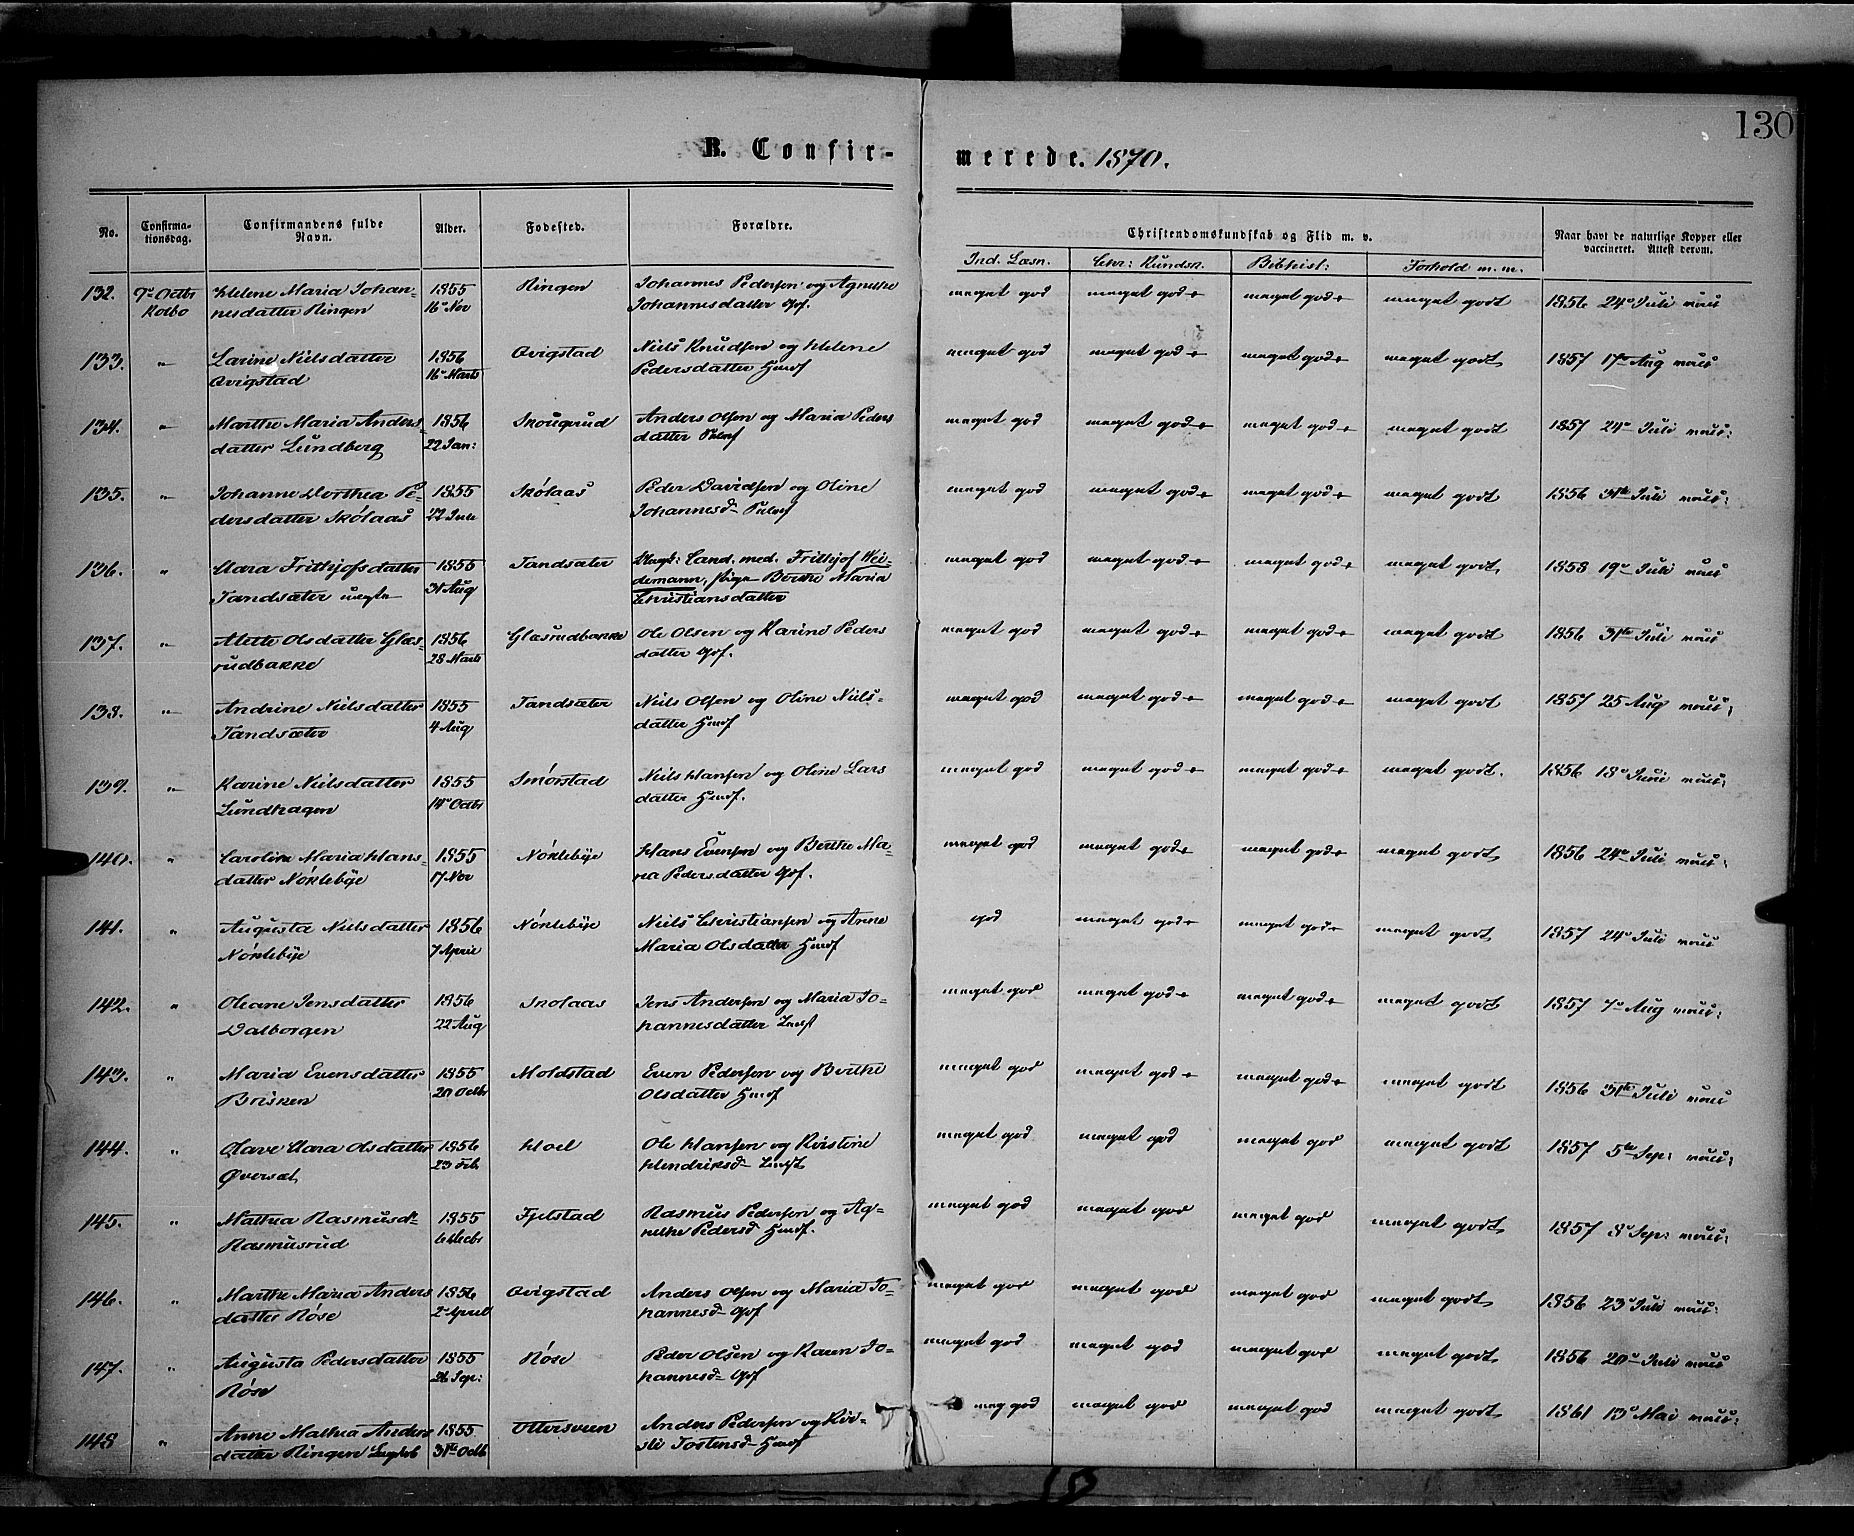 130
B. Confirmerede. 1870.
No. Confirmationsdag. Confirmandens fulde Navn. Alder. Fødested. Forældre. Christendomskundskab og Flid m. v. Naar havt de naturlige Kopper eller vaccineret. Attest derom.
Ind. Læsn. Chr: Kundsk. Bibhist: Forhold m. m.
132. 7de Octbr Kolbo Helene Maria Johannesdatter Ringen 1855 16 Nov Ringen Johannes Pedersen og Agnethe Johannesdatter Gbf. meget god meget god+ meget god+ meget godt 1856 24de Juli
133. " Larine Nielsdatter Qvigstad 1856 16 Marts Qvigstad Niels Knudsen og Helene Pedersdatter Husf meget god meget god+ meget god+ meget godt 1857 17de Aug
134. " Marthe Maria Andersdatter Lundberg 1856 22 Jan: Skougrud Anders Olsen og Maria Pedersdatter meget god meget god+ meget god+ meget godt 1857 24de Juli
135. " Johanne Dorthea Pedersdatter Skölaas 1855 Skölaas Peder Davidsen og Oline Johannesd- meget god meget god+ meget god+ meget godt 1856 31te Juli
136. " Clara Frithjofsdatter Tandsæter uægte 1855 31 Aug Tandsæter Cand. med. Frithjof Weidemann, Pige Berthe Maria Christiansdatter meget god meget god+ meget god+ meget godt 1858 19de Juli
137. " Alette Olsdatter Glæsrudbakke 1856 28 Marts Glæsrudbakke Ole Olsen og Karine Pedersdatter Gbf. meget god meget god+ meget god+ meget godt 1856 31te Juli
138. " Andrine Nielsdatter Tandsæter 1855 4 Aug Tandsæter Niels Olsen og Oline Nielsdatter Husf meget god meget god+ meget god+ meget godt 1857 25 Aug
139. " Karine Nielsdatter Lundhagen 1855 14de Octbr Smörstad Niels Hansen og Oline Larsdatter Husf. meget god meget god+ meget god+ meget godt. 1856 18de
140. " Caroline Maria Hansdatter Nöklebye 1855 17 Nov Nöklebye Hans Evensen og Berthe Maria Pedersdatter Gbf. meget god meget god+ meget god+ meget godt 1856 24de Juli
141. " Augusta Nielsdatter Nöklebye 1856 7 April Nöklebye Niels Christiansen og Anne Maria Olsdatter Husf god meget god+ meget god+ meget godt 1857 24de Juli
142. " Oleane Jensdatter Dalborgen 1856 22 Aug Skolaas Jens Andersen og Maria Johannesdatter meget god meget god+ meget god+ meget godt 1857 7de Aug
143. " Maria Evensdatter Brisken 1855 20 Octbr Moldstad Even Pedersen og Berthe Olsdatter Husf meget god meget god+ meget god+ meget godt 1856 31te Juli
144. " Olave Clara Olsdatter Øversæt 1856 23 Feb Hoel Ole Hansen og Kristine Hendriksd- meget god meget god meget god meget godt 1857 5te Sep:
145. " Mathea Rasmusd- Rasmusrud 1855 6 Decbr Fjelstad Rasmus Pedersen og Agnethe Pedersd Husf. meget god meget god meget god meget godt 1857 8de Sep:
146. " Marthe Maria Andersdatter Röse 1856 2de April Qvigstad Anders Olsen og Maria Johannesd- Gbf meget god meget god meget god meget godt 1856 23de Juli
147. " Augusta Pedersdatter Röse 1855 26 Sep: Röse Peder Olsen og Karen Johannesd- Gbf meget god meget god meget god meget godt 1856 20de Juli
148 " Anne Mathea Andersdatter Ringen 1855 31te Octb Ottersveen Anders Pedersen og Kirsti Tostensd- Husf meg god meget god meget god meget godt 1861 13de Mai